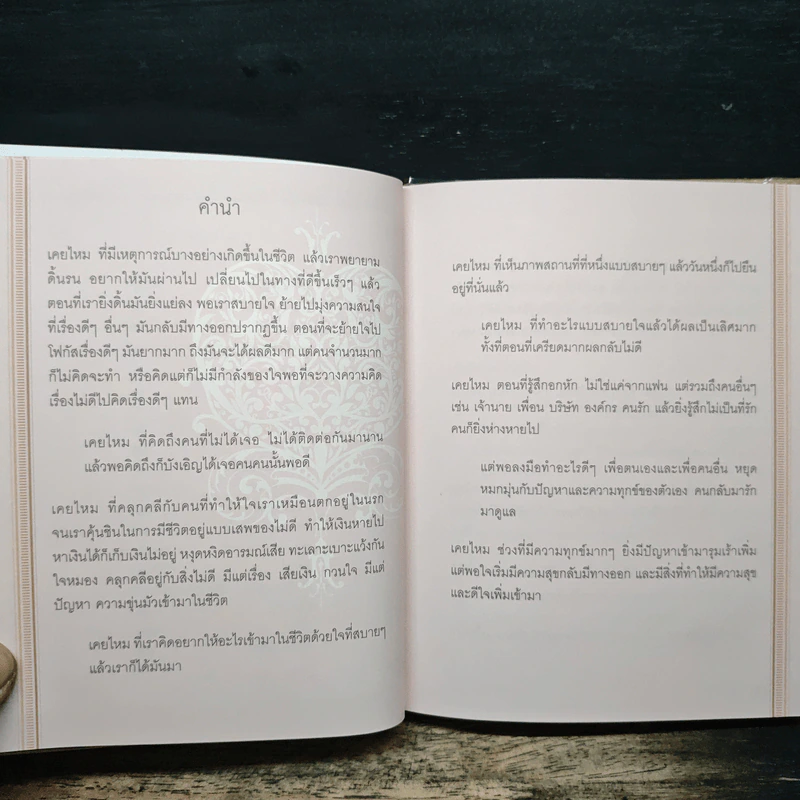 คำนำ
เคยไหม ที่มีเหตุการณ์บางอย่างเกิดขึ้นในชีวิต แล้วเราพยายาม
ดิ้นรน อยากให้มันผ่านไป เปลี่ยนไปในทางที่ดีขึ้นเร็วๆ แล้ว
ตอนที่เรายิ่งดิ้นมันยิ่งแย่ลง พอเราสบายใจ ย้ายไปมุ่งความสนใจ
ที่เรื่องดีๆ อื่นๆ มันกลับมีทางออกปรากฏขึ้น ตอนที่จะย้ายใจไป
โฟกัสเรื่องดีๆ มันยากมาก ถึงมันจะได้ผลดีมาก แต่คนจำนวนมาก
ก็ไม่คิดจะทำ หรือคิดแต่ก็ไม่มีกำลังของใจพอที่จะวางความคิด
เรื่องไม่ดีไปคิดเรื่องดีๆ แทน
เคยไหม ที่คิดถึงคนที่ไม่ได้เจอ ไม่ได้ติดต่อกันมานาน
แล้วพอคิดถึงก็บังเอิญได้เจอคนคนนั้นพอดี
เคยไหม ที่คลุกคลีกับคนที่ทำให้ใจเราเหมือนตกอยู่ในนรก
จนเราคุ้นชินในการมีชีวิตอยู่แบบเสพของไม่ดี ทำให้เงินหายไป
หาเงินได้ก็เก็บเงินไม่อยู่ หงุดหงิดอารมณ์เสีย ทะเลาะเบาะแว้งกัน
ใจหมอง คลุกคลีอยู่กับสิ่งไม่ดี มีแต่เรื่อง เสียเงิน กวนใจ มีแต่
ปัญหา ความขุ่นมัวเข้ามาในชีวิต
เคยไหม ที่เราคิดอยากให้อะไรเข้ามาในชีวิตด้วยใจที่สบายๆ
แล้วเราก็ได้มันมา
เคยไหม ที่เห็นภาพสถานที่ที่หนึ่งแบบสบายๆ แล้ววันหนึ่งก็ไปยืน
อยู่ที่นั่นแล้ว
เคยไหม ที่ทำอะไรแบบสบายใจแล้วได้ผลเป็นเลิศมาก
ทั้งที่ตอนที่เครียดมากผลกลับไม่ดี
เคยไหม ตอนที่รู้สึกอกหัก ไม่ใช่แค่จากแฟน แต่รวมถึงคนอื่นๆ
เช่น เจ้านาย เพื่อน บริษัท องค์กร คนรัก แล้วยิ่งรู้สึกไม่เป็นที่รัก
คนก็ยิ่งห่างหายไป
แต่พอลงมือทำอะไรดีๆ เพื่อตนเองและเพื่อคนอื่น หยุด
หมกมุ่นกับปัญหาและความทุกข์ของตัวเอง คนกลับมารัก
มาดูแล
เคยไหม ช่วงที่มีความทุกข์มากๆ ยิ่งมีปัญหาเข้ามารุมเร้าเพิ่ม
แต่พอใจเริ่มมีความสุขกลับมีทางออก และมีสิ่งที่ทำให้มีความสุข
และดีใจเพิ่มเข้ามา